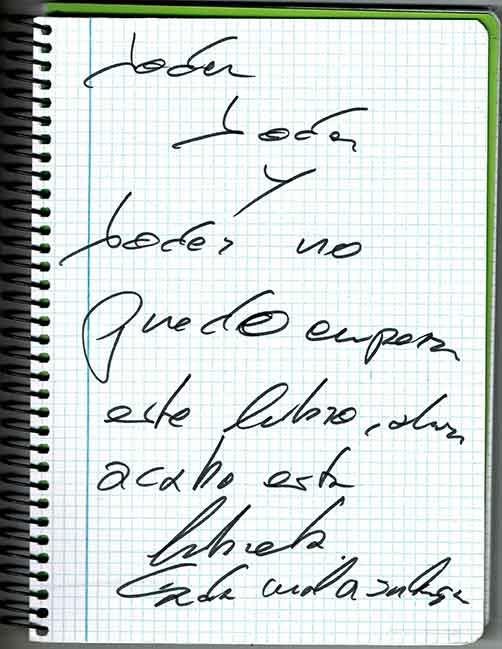 Joder
Joder
y
Joder no
puedo empezar
este libro,
acabo esta
libreta.
Cada